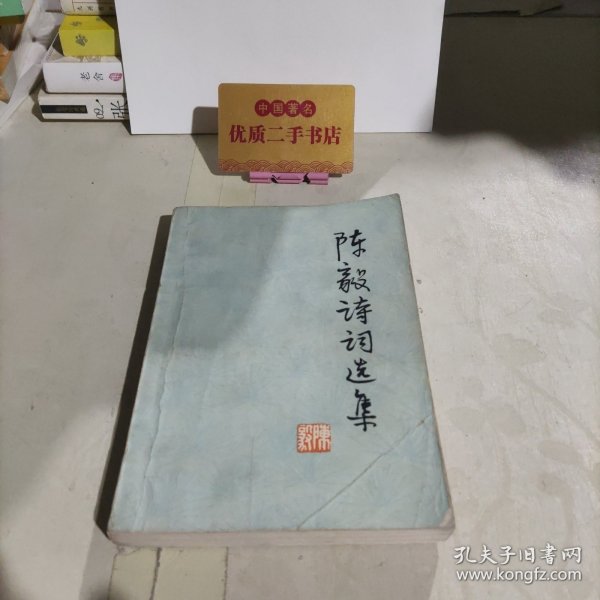 老舍
中国著名
优质二手书店
陈毅诗词选集
陳毅
孔夫子旧书网
www.kongfz.com